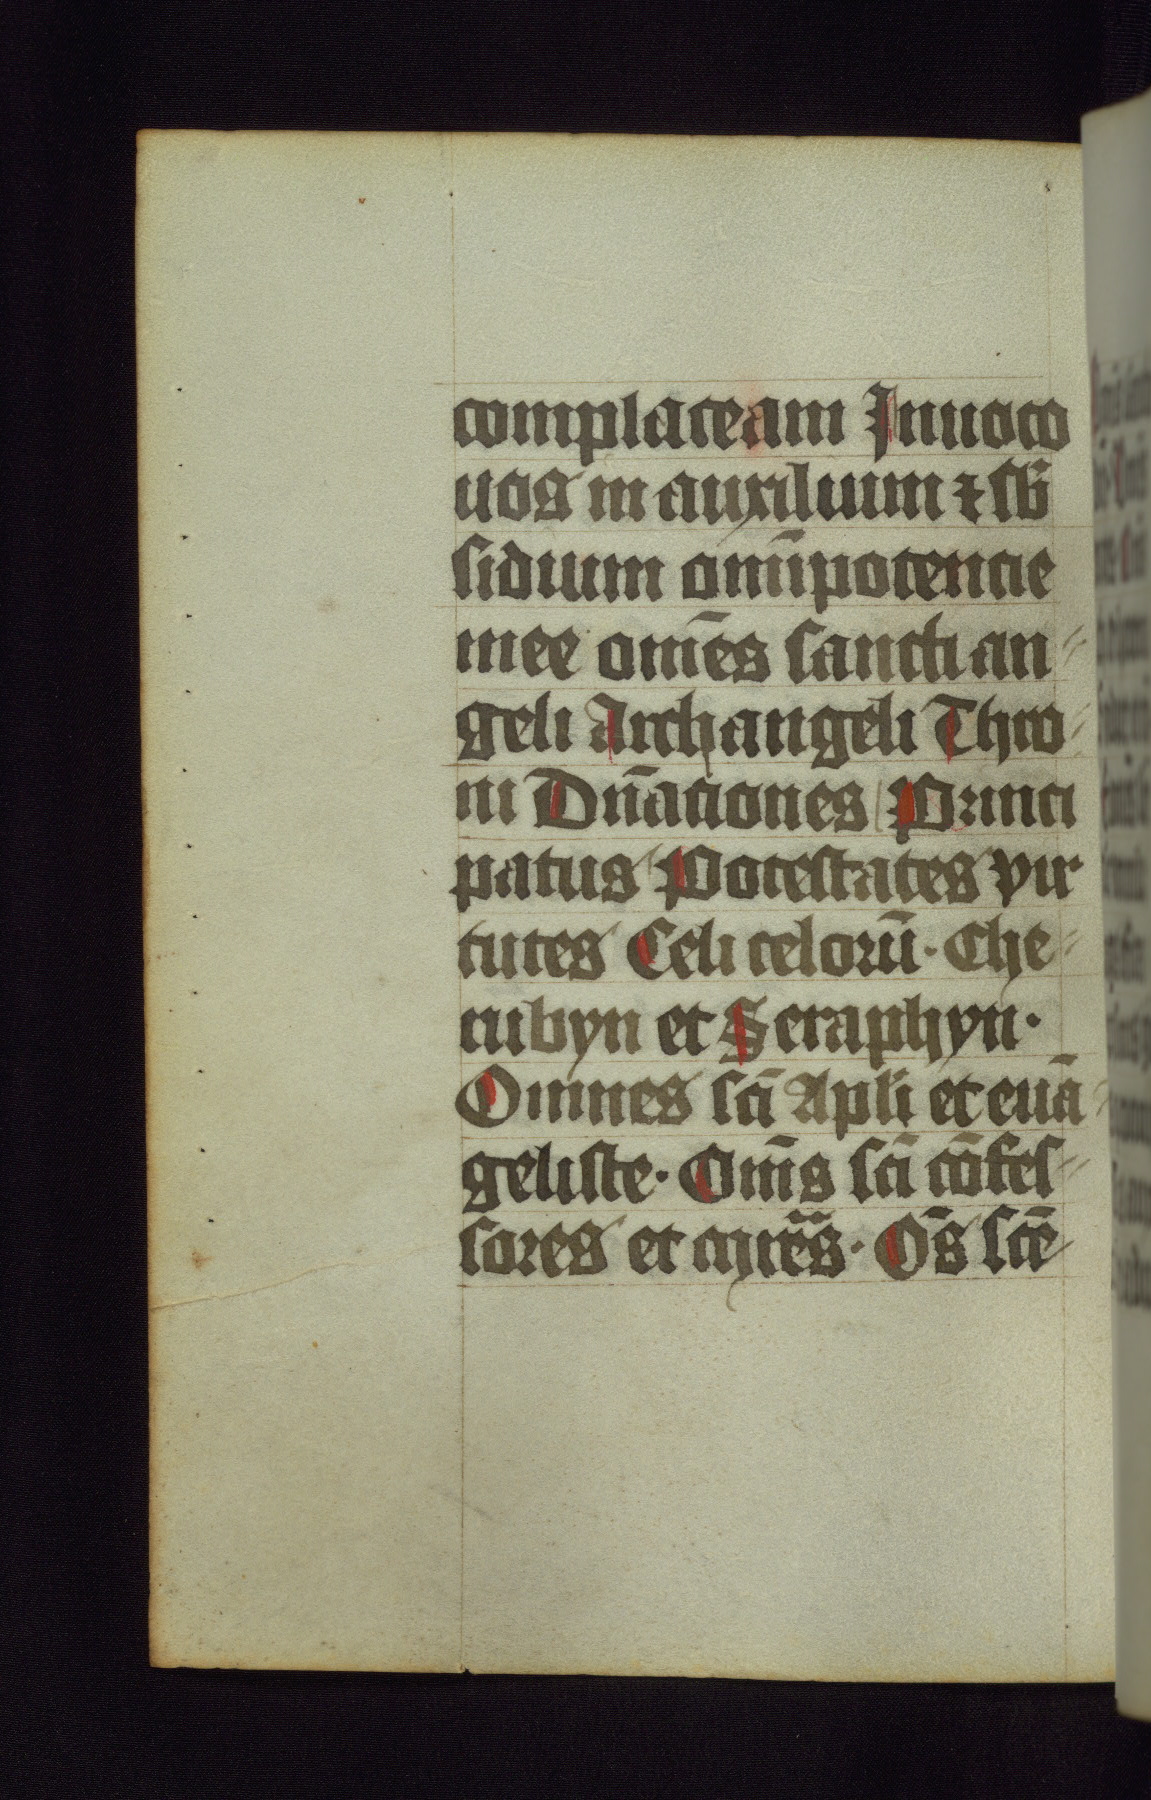 complaceam Inuoco
uos in auxilium ⁊ sb̄
sidium omīpotencie
mee om̄es sancti an
geli Archangeli Thro
ni Dn̄ationes Princi
patus Potestates vir
tutes Celi celorū. Che
rubyn et Seraphyn.
Omnes sc̄i Apl̄i et euā
geliste. Om̄s sc̄i cōfes
sores et m̄r̄es. Ōs sc̄e